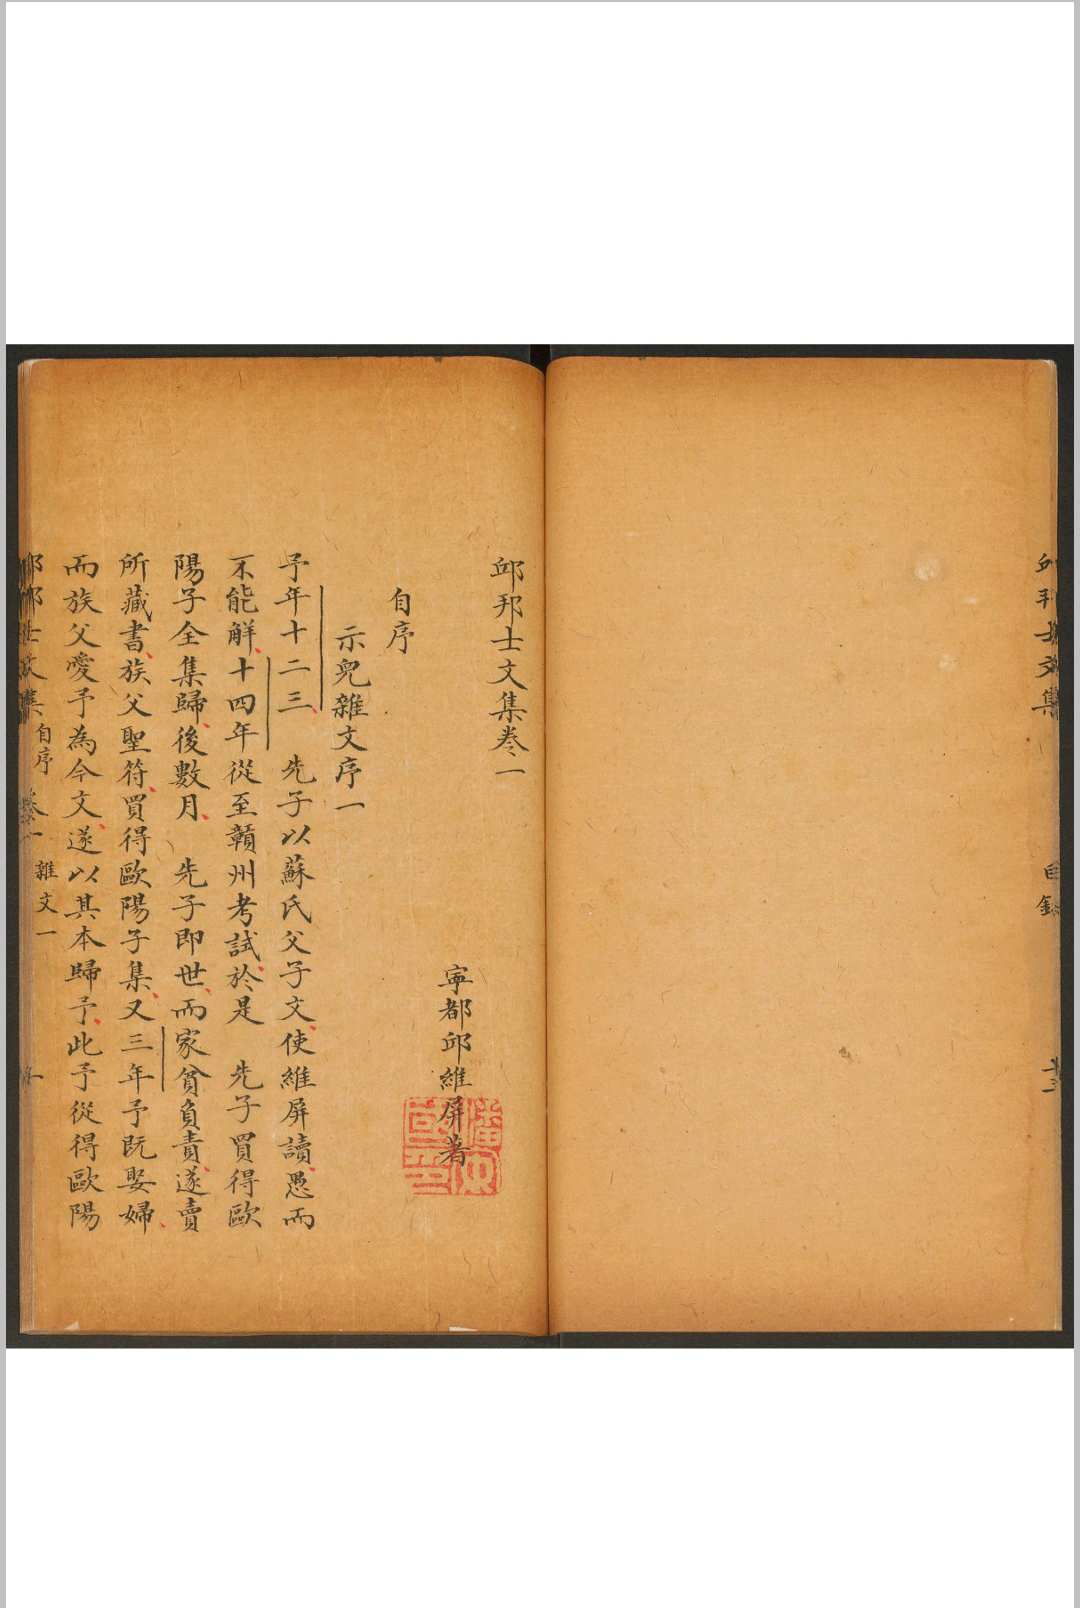 邱邦士文集
目錄
邱邦士文集卷一
寧都邱維屏著
自序
示兒雜文序一
予年十二三 先子以蘇氏父子文使維屏讀愚而
不能解十四年從至贛州考試於是 先子買得歐
陽子全集歸後數月 先子即世而家貧負責遂賣
所藏書族父聖符買得歐陽子集又三年予既娶婦
而族父愛予為今文遂以其本歸予此予從得歐陽
邱邦士文集 自序 卷一 雜文一